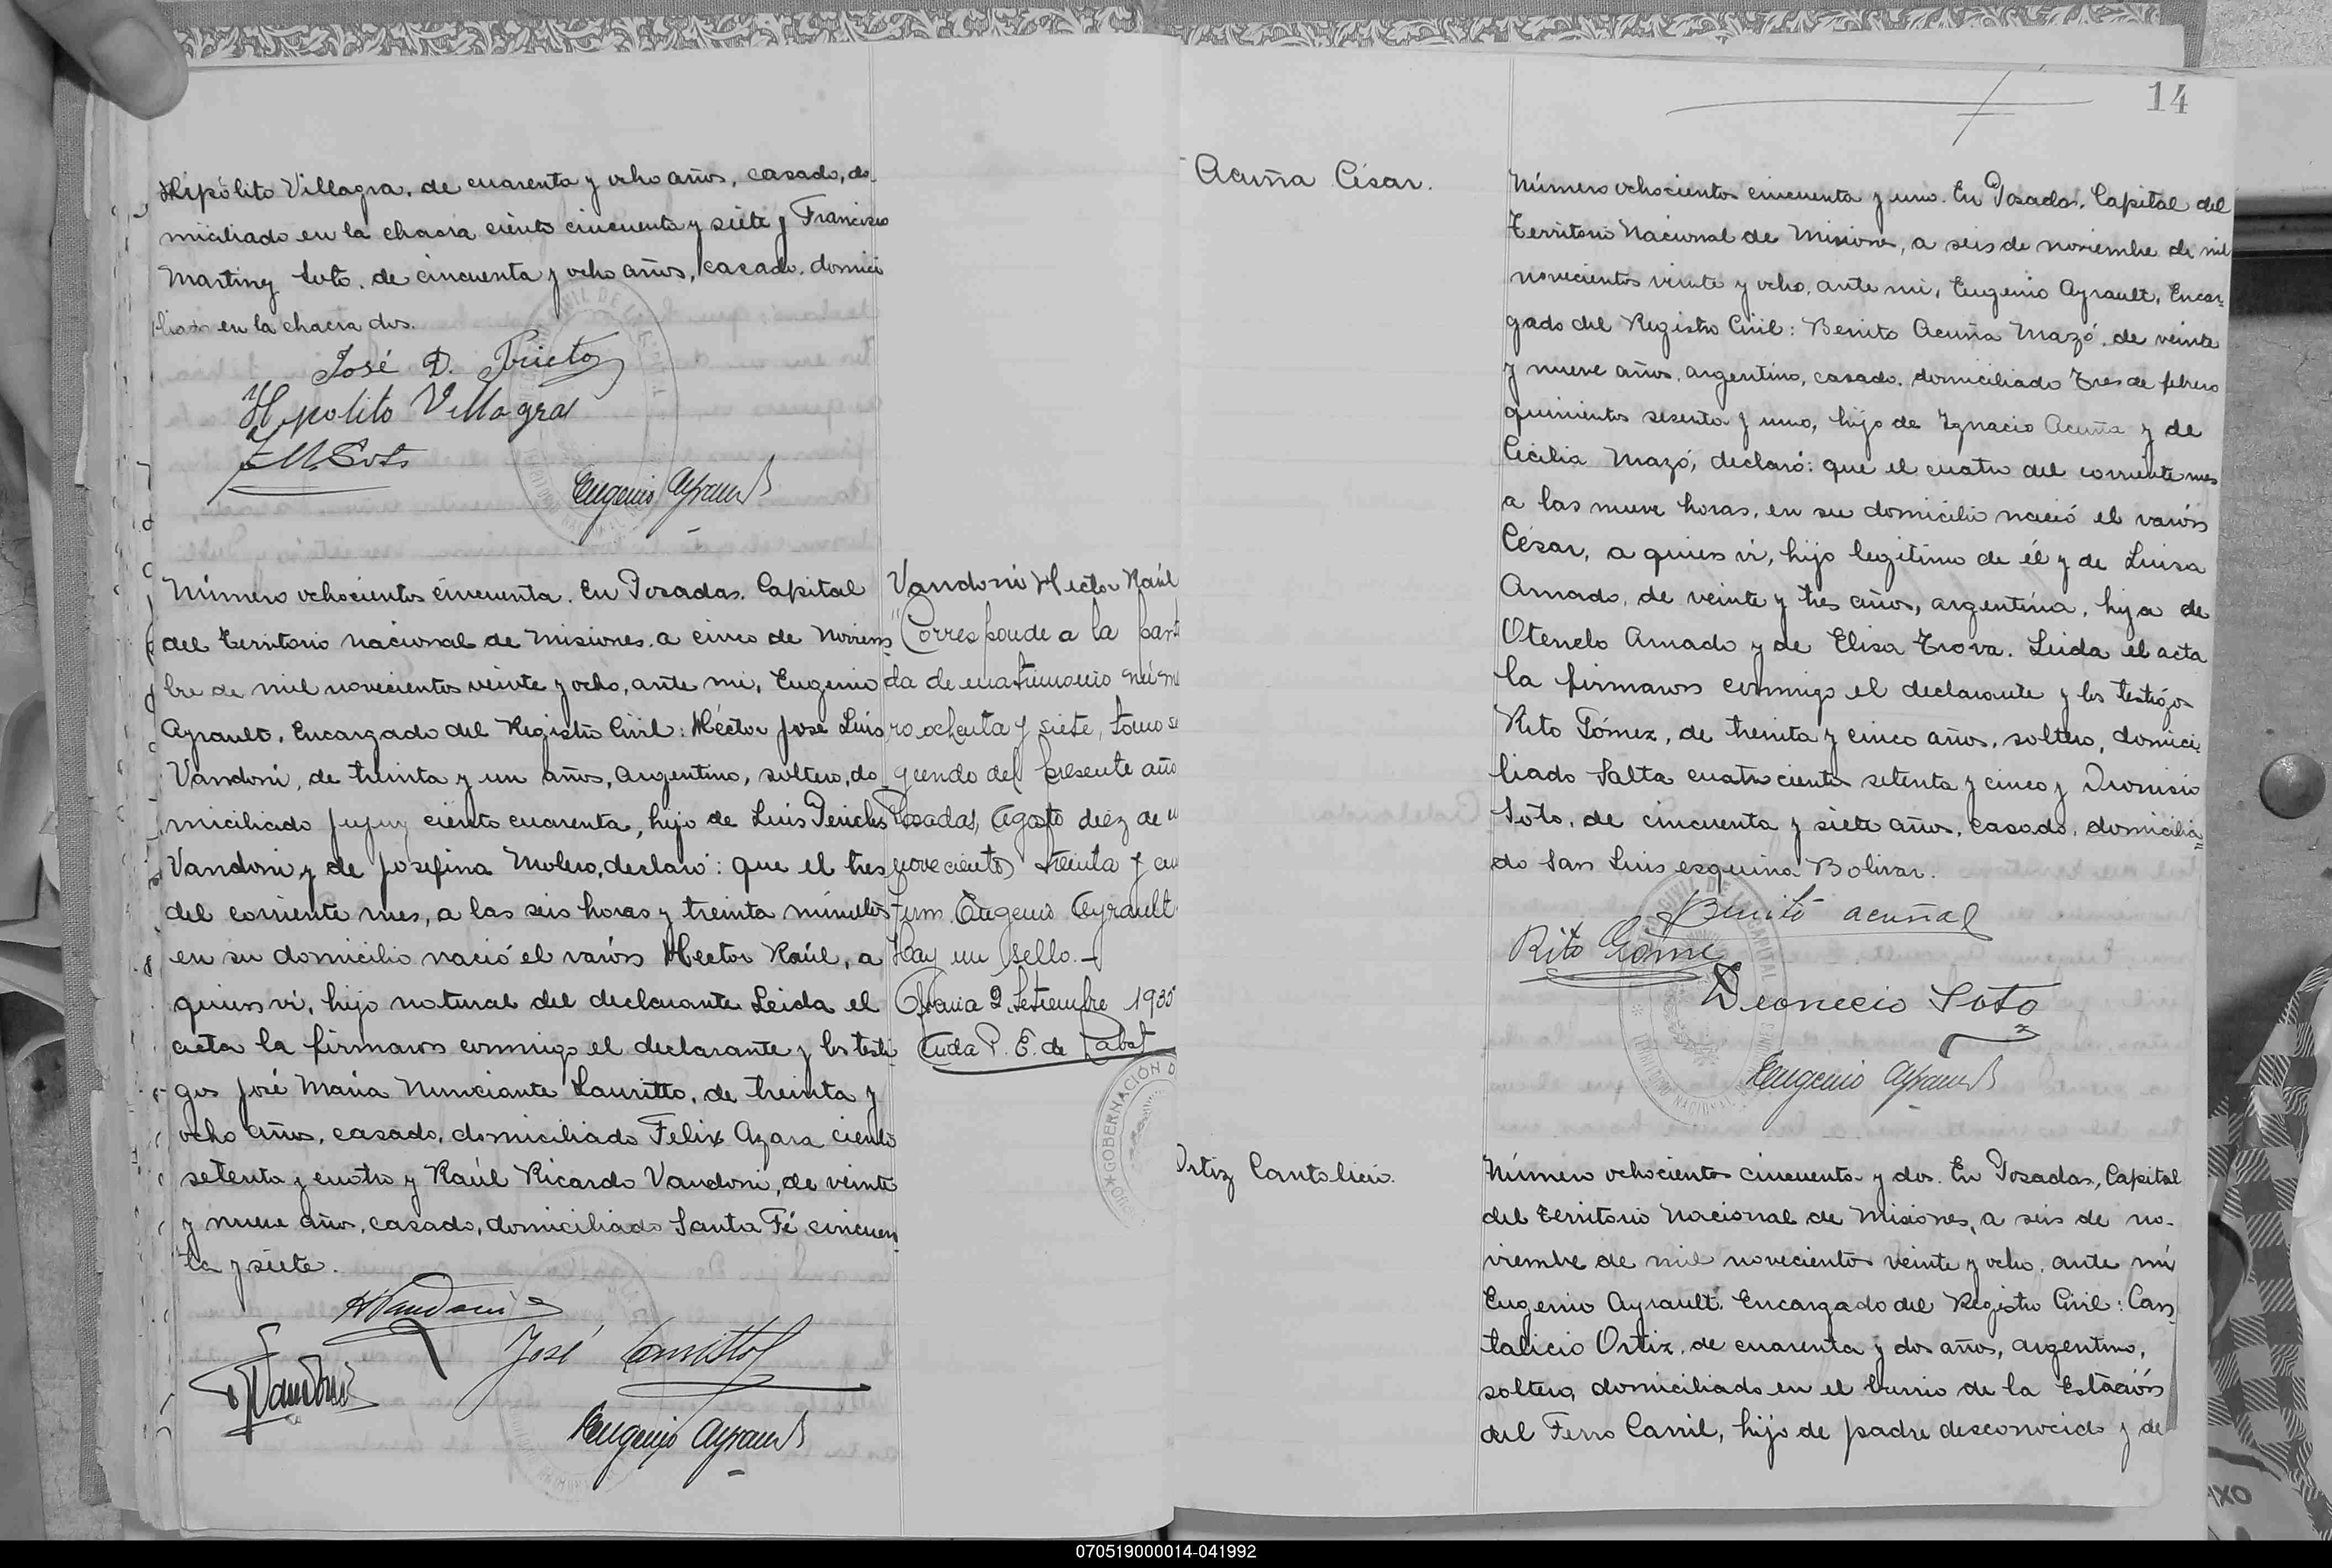 Hipólito Villagra, de cuarenta y ocho años, casado, do-
miciliado en la chacra ciento cincuenta y siete y Francisco
Martinez Soto, de cincuenta y ocho años, casado, domici
liado en la chacra dos.
José D. Prieto
Hipolito Villagra
F. M. Soto
Eugenio Ayrault
Número ochocientos cincuenta. En Posadas, Capital
del Territorio Nacional de Misiones, a cinco de Noviem-
bre de mil novecientos veinte y ocho, ante mi, Eugenio
Ayrault, Encargado del Registro Civil: Héctor José Luis
Vandoni, de treinta y un años, argentino, soltero, do
miciliado Jujuy ciento cuarenta, hijo de Luis Pericles
Vandoni y de Josefina Molero, declaró: que el tres
del corriente mes, a las seis horas y treinta minutos
en su domicilio nació el varón Hector Raúl, a
quien vi, hijo natural del declarante Leida el
acta la firmaron conmigo el declarante y los testi-
gos José Maria Nunciante Lauritto, de treinta y
ocho años, casado, domiciliado Felix Azara ciento
setenta y cuatro y Raúl Ricardo Vandoni, de veinte
y nueve años, casado, domiciliado Santa Fé cincuen-
ta y siete.
HVandoni
José Lauritto
RVandoni
Eugenio Ayrault
Vandoni Hector Raúl
"Corresponde a la part
da de matrimonio núme
ro ochenta y siete, tomo se
gundo del presente año
Posadas, Agosto diez de
novecientos treinta y
Firm. Eugenio Ayrault
Hay un sello.-
2 Setiembre 1935
P. E. de
GOBERNACIÓN D
14
Acuña César.
Número ochocientos cincuenta y uno. En Posadas, Capital del
Territorio Nacional de Misiones, a seis de noviembre de mil
novecientos veinte y ocho, ante mi, Eugenio Ayrault, Encar-
gado del Registro Civil: Benito Acuña Mazó, de veinte
y nueve años, argentino, casado, domiciliado Tres de febrero
quinientos sesenta y uno, hijo de Ignacio Acuña y de
Cecilia Mazó, declaró: que el cuatro del corriente mes
a las nueve horas, en su domicilio nació el varón
César, a quien vi, hijo legitimo de él y de Luisa
Amado, de veinte y tres años, argentina, hija de
Otenelo Amado y de Elisa Trova. Leida el acta
la firmaron conmigo el declarante y los testigos
Rito Gómez, de treinta y cinco años, soltero, domici-
liado Salta cuatrocientos setenta y cinco y Dionisio
Soto, de cincuenta y siete años, casado, domicilia-
do San Luis esquina Bolivar.
Benito acuñal
Rito Gome
Deonecio Soto
Eugenio Ayrault
Ortiz Cantalicio.
Número ochocientos cincuenta y dos. En Posadas, Capital
del Territorio Nacional de Misiones, a seis de no-
viembre de mil novecientos veinte y ocho, ante mi
Eugenio Ayrault, Encargado del Registro Civil: Can-
talicio Ortiz, de cuarenta y dos años, argentino,
soltero, domiciliado en el barrio de la Estación
del Ferro Carril, hijo de padre desconocido y de
070519000014-041992